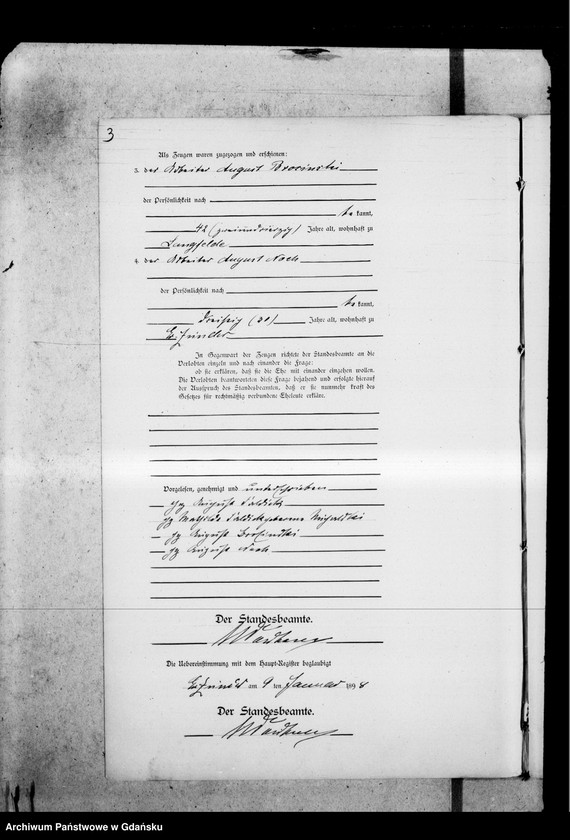 3
Als Zeugen waren zugezogen und erschienen:
3. der Arbeiter August Brosinski
der Persönlichkeit nach
be kannt,
42 (zweiundvierzig) Jahre alt, wohnhaft zu
Langfelde
4. der Arbeiter August Noch
der Persönlichkeit nach
be kannt,
dreißig (30) Jahre alt, wohnhaft zu
In Gegenwart der Zeugen richtete der Standesbeamte an die
Verlobten einzeln und nach einander die Frage:
ob sie erklären, daß sie die Ehe mit einander eingehen wollen.
Die Verlobten beantworteten diese Frage bejahend und erfolgte hierauf
der Ausspruch des Standesbeamten, daß er sie nunmehr kraft des
Gesetzes für rechtmäßig verbundene Eheleute erkläre.
Vorgelesen, genehmigt und unterschrieben
gez August
gez Mathilde geborene
gez August
gez August Noch
Der Standesbeamte.
Die Uebereinstimmung mit dem Haupt-Register beglaubigt
am 9 ten Januar 1898
Der Standesbeamte.
Archiwum Państwowe w Gdańsku